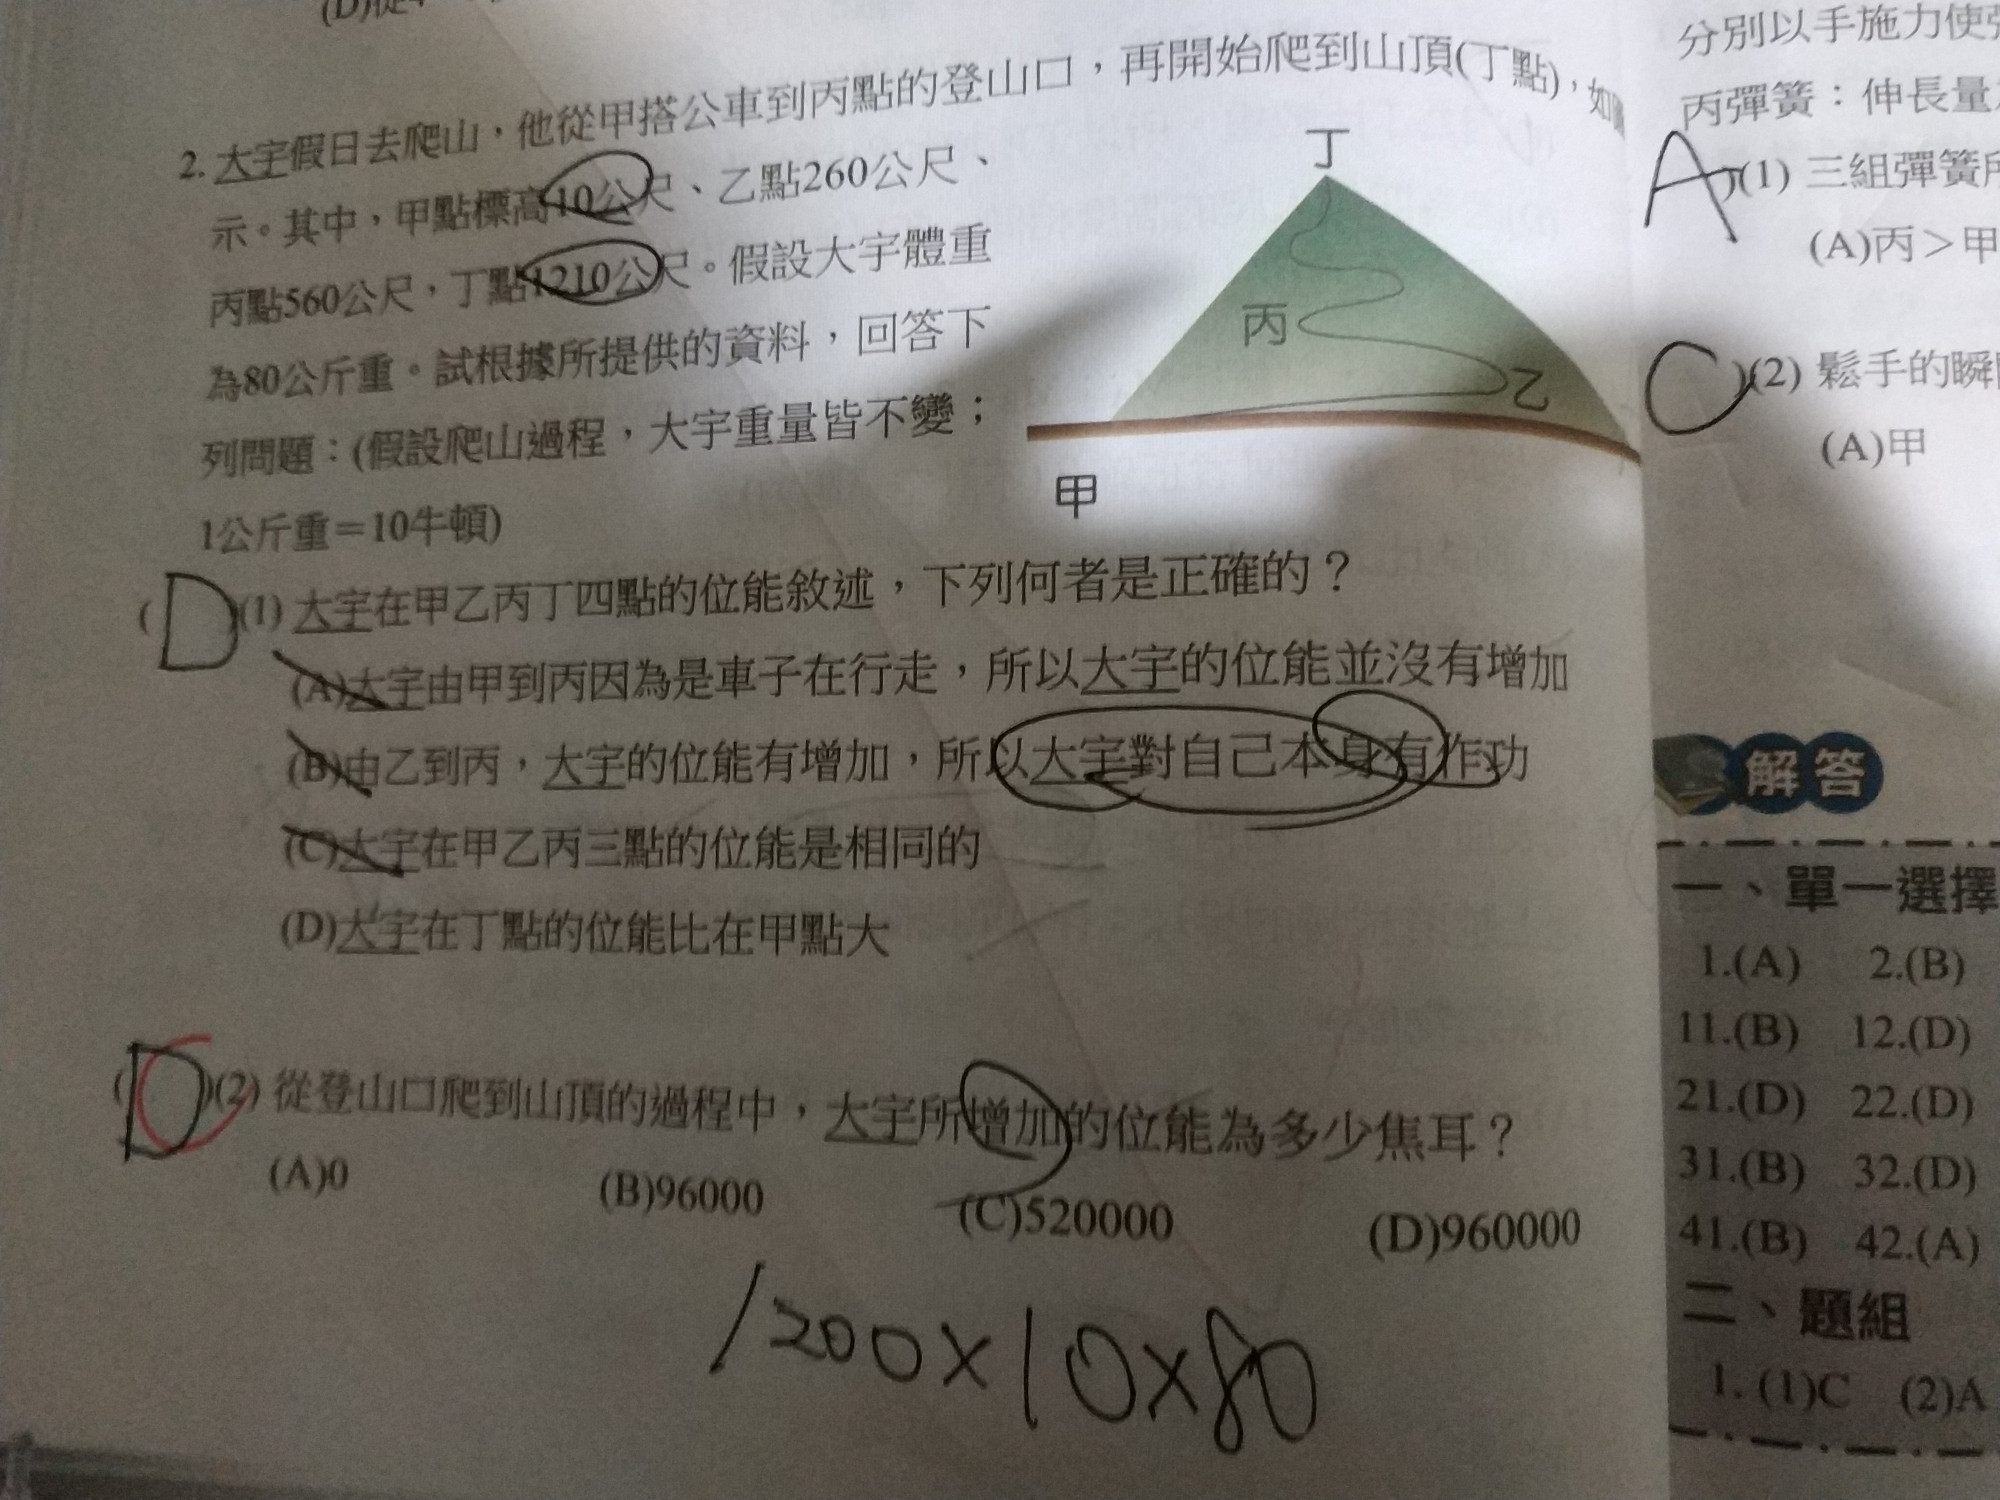 2. 大宇假日去爬山，他從甲搭公車到丙點的登山口，再開始爬到山頂(丁點)，如圖
示。其中，甲點標高10公尺、乙點260公尺、
丙點560公尺，丁點1210公尺。假設大宇體重
為80公斤重。試根據所提供的資料，回答下
列問題：(假設爬山過程，大宇重量皆不變；
1公斤重＝10牛頓)
丁
丙
乙
甲
(D)(1) 大宇在甲乙丙丁四點的位能敘述，下列何者是正確的？
(A)大宇由甲到丙因為是車子在行走，所以大宇的位能並沒有增加
(B)由乙到丙，大宇的位能有增加，所以大宇對自己本身有作功
(C)大宇在甲乙丙三點的位能是相同的
(D)大宇在丁點的位能比在甲點大
(D)(2) 從登山口爬到山頂的過程中，大宇所增加的位能為多少焦耳？
(A)0 (B)96000 (C)520000 (D)960000
1200×10×80
分別以手施力使
丙彈簧：伸長量
A)(1) 三組彈簧所
(A)丙＞甲
C)(2) 鬆手的瞬間
(A)甲
解答
一、單一選擇
1.(A) 2.(B)
11.(B) 12.(D)
21.(D) 22.(D)
31.(B) 32.(D)
41.(B) 42.(A)
二、題組
1. (1)C (2)A